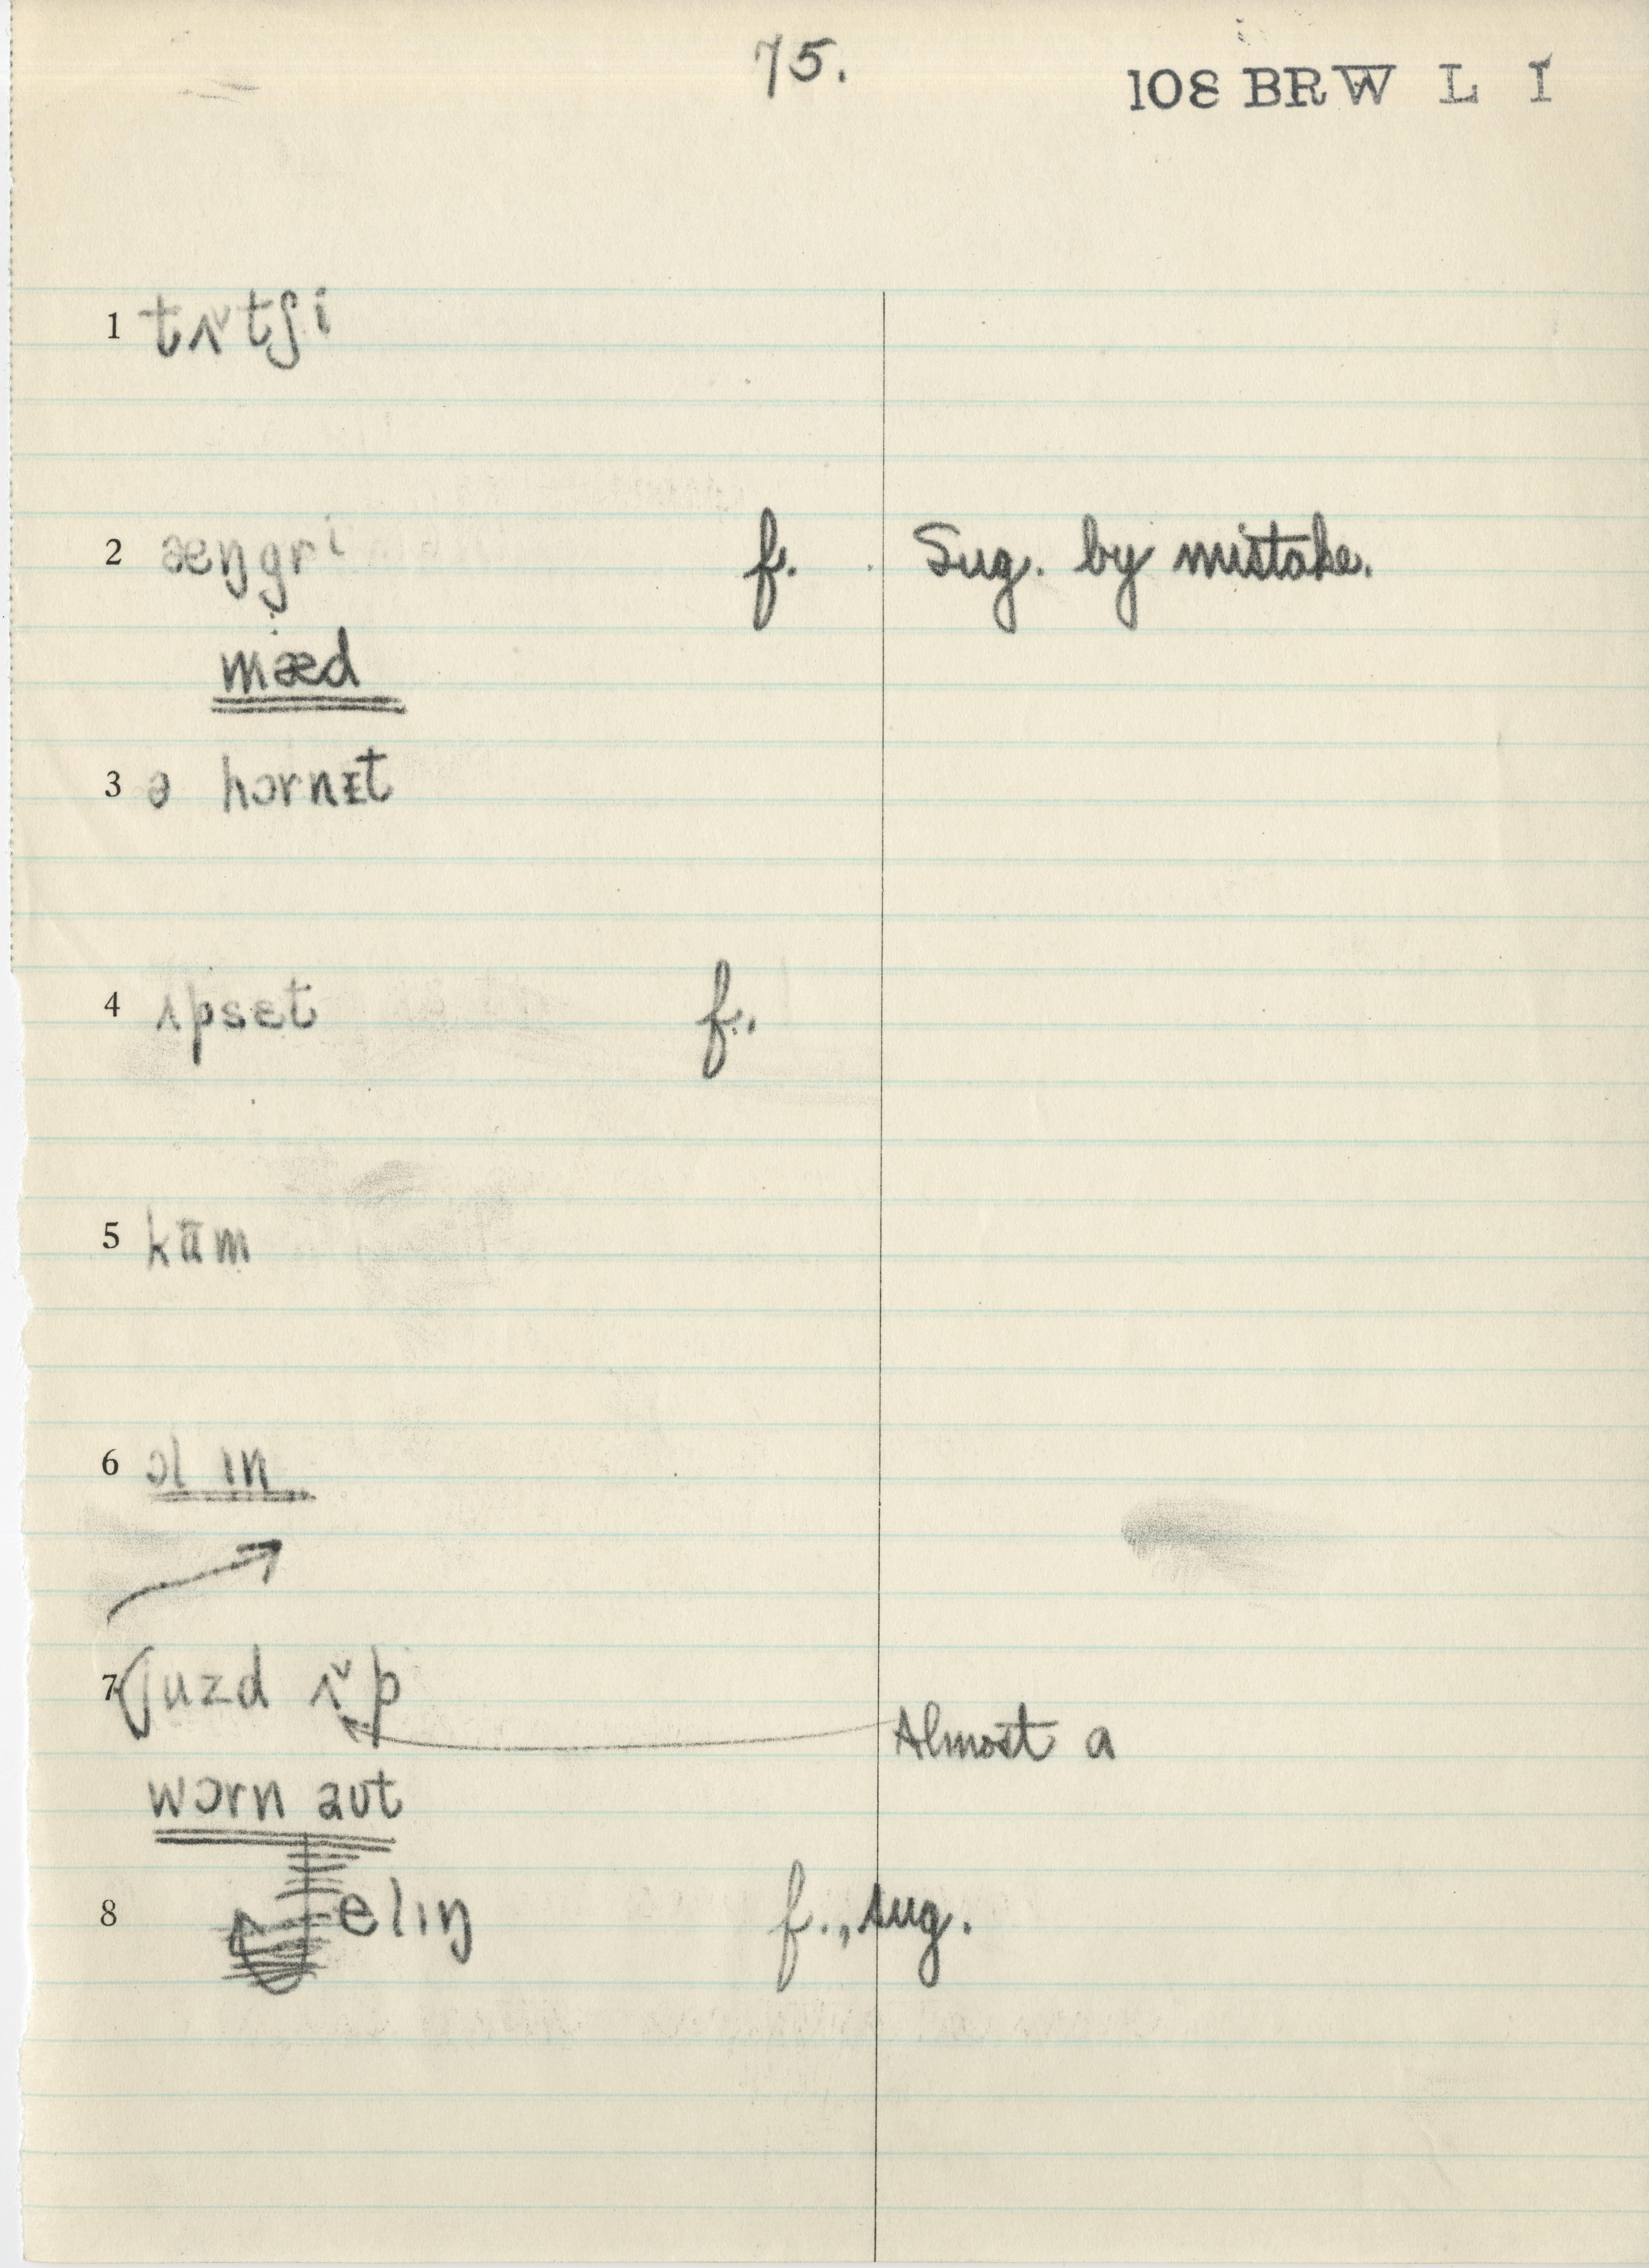 75.
108 BRW L I
1 tʌ˅tʃi
2 æŋgri f. Sug. by mistake.
mæd
3 ə hɔrnɪt
4 ʌpsɛt f.
5 kɑm
6 ɔl ɪn
7 juzd ʌ˅p
Almost a
wɔrn aʊt
8 elɪŋ f., sug.